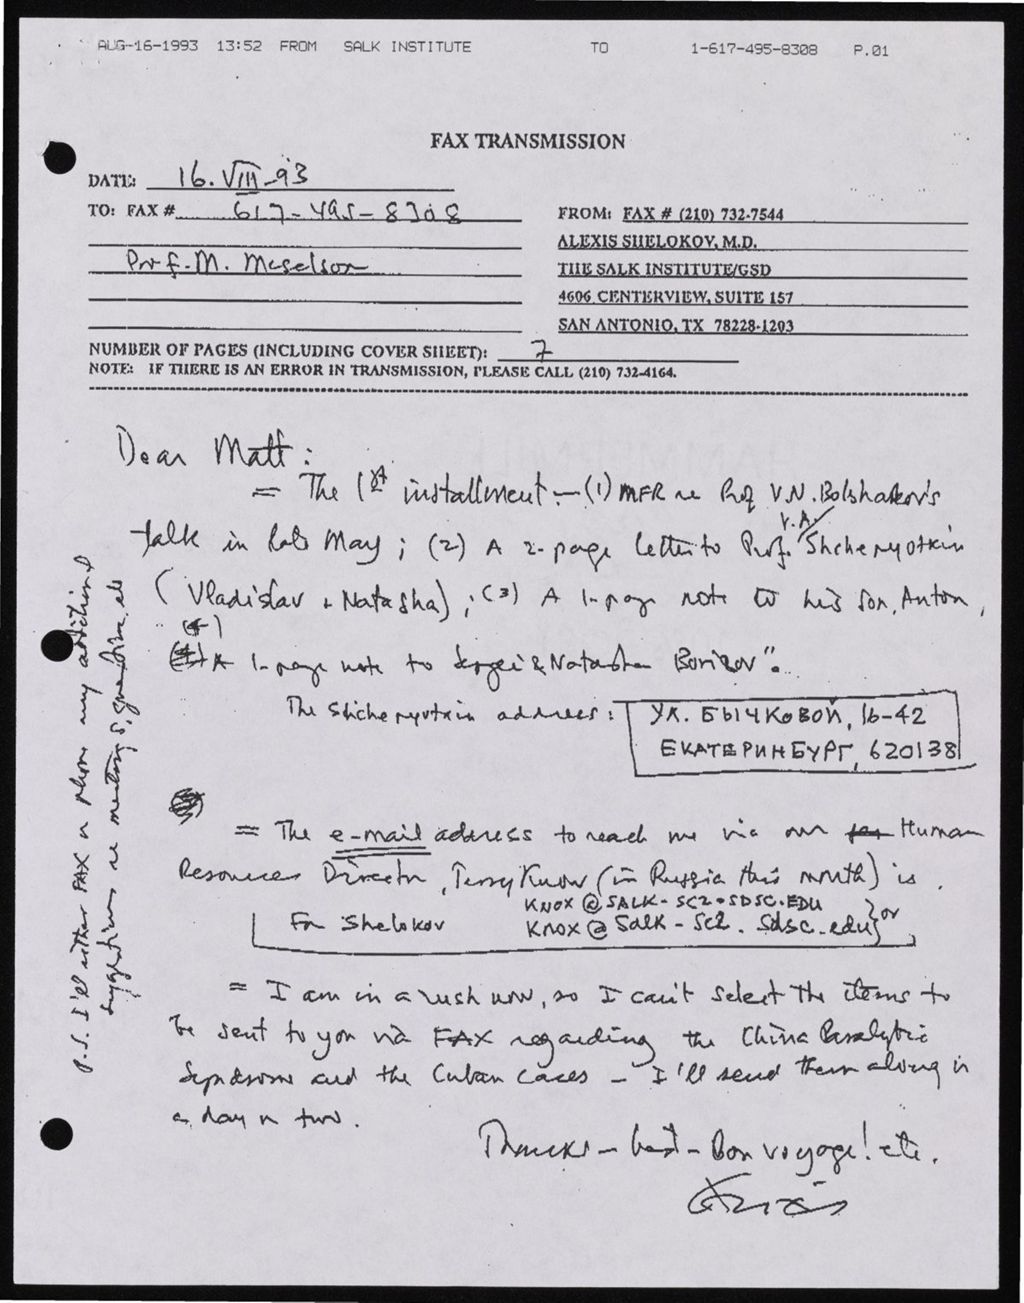 AUG-16-1993 13:52 FROM SALK INSTITUTE TO 1-617-495-8308 P.01
FAX TRANSMISSION
DATE: 16.VIII-93
TO: FAX # 617-495-8308
Prof. M. Meselson
FROM: FAX # (210) 732-7544
ALEXIS SHELOKOV, M.D.
THE SALK INSTITUTE/GSD
4606 CENTERVIEW, SUITE 157
SAN ANTONIO, TX 78228-1203
NUMBER OF PAGES (INCLUDING COVER SHEET): 7
NOTE: IF THERE IS AN ERROR IN TRANSMISSION, PLEASE CALL (210) 732-4164.
Dear Matt:
= The 1st installment – (1) MFR re Prof V.N. Bolshakov's
talk in late May; (2) A 2-page letter to Prof. V.A. Shchepyotkin
(Vladislav + Natasha); (3) A 1-page note to his son, Anton,
(4) A 1-page note to Sergei & Natasha Borisov".
The Shchepyotkin address: УЛ. БЫЧКОВОЙ, 16-42
ЕКАТЕРИНБУРГ, 620138
= The e-mail address to reach me via our Human
Resources Director, Terry Knox (in Russia this month) is
KNOX@SALK-SC2.SDSC.EDU
For Shelokov Knox@Salk-SC2.Sdsc.edu } or
= I am in a rush now, so I can't select the items to
be sent to you via FAX regarding the China Paralytic
Syndrome and the Cuban cases – I'll send them along in
a day or two.
Thanks – best – Bon voyage! etc.
Alexis
P.S. I'll either FAX or phone my additional
suggestions re meetings, etc.